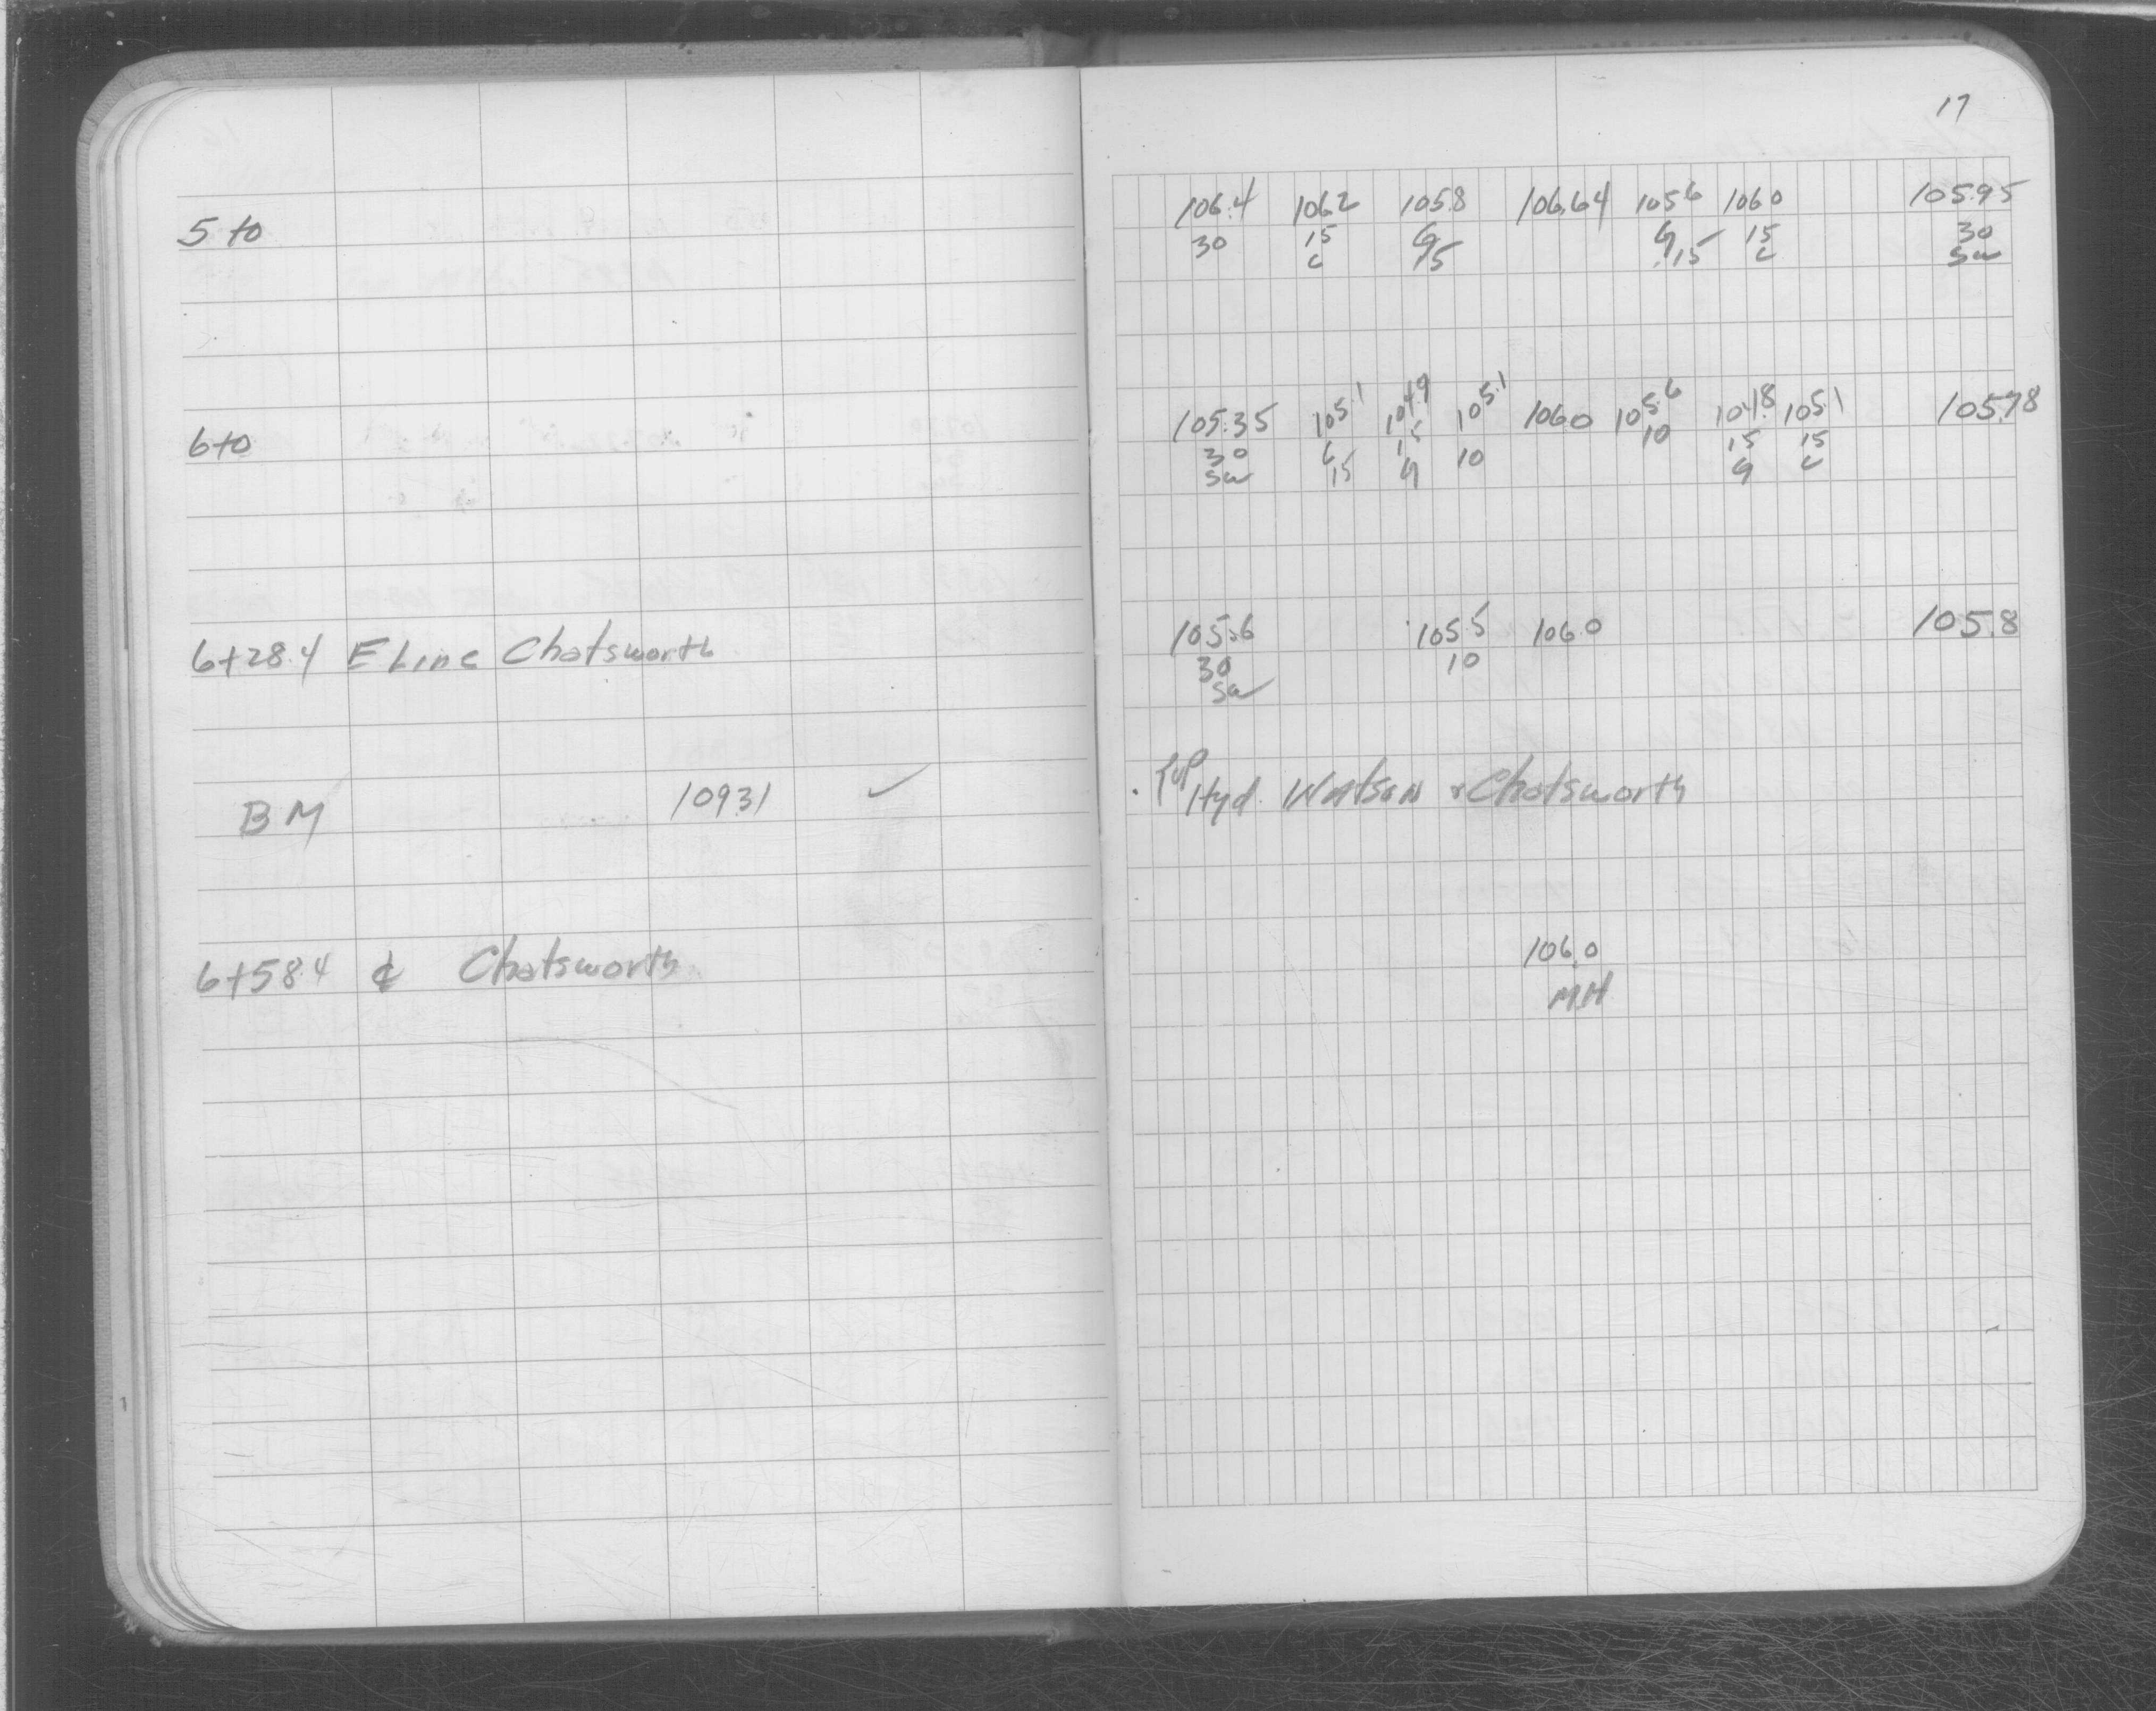 17
5+0 106.4 106.2 105.8 106.64 105.6 106.0 105.95
30 15 G G 15 30
C 15 15 C SW
6+0 105.35 105.1 104.9 105.1 106.0 105.6 104.8 105.1 105.78
30 C 15 10 10 15 15
SW 15 G G C
6+28.4 E Line Chatsworth 105.6 105.5 106.0 105.8
30 10
SW
BM 109.31 ✓ Hyd. Watson & Chatsworth
6+58.4 ₵ Chatsworth 106.0
M.H